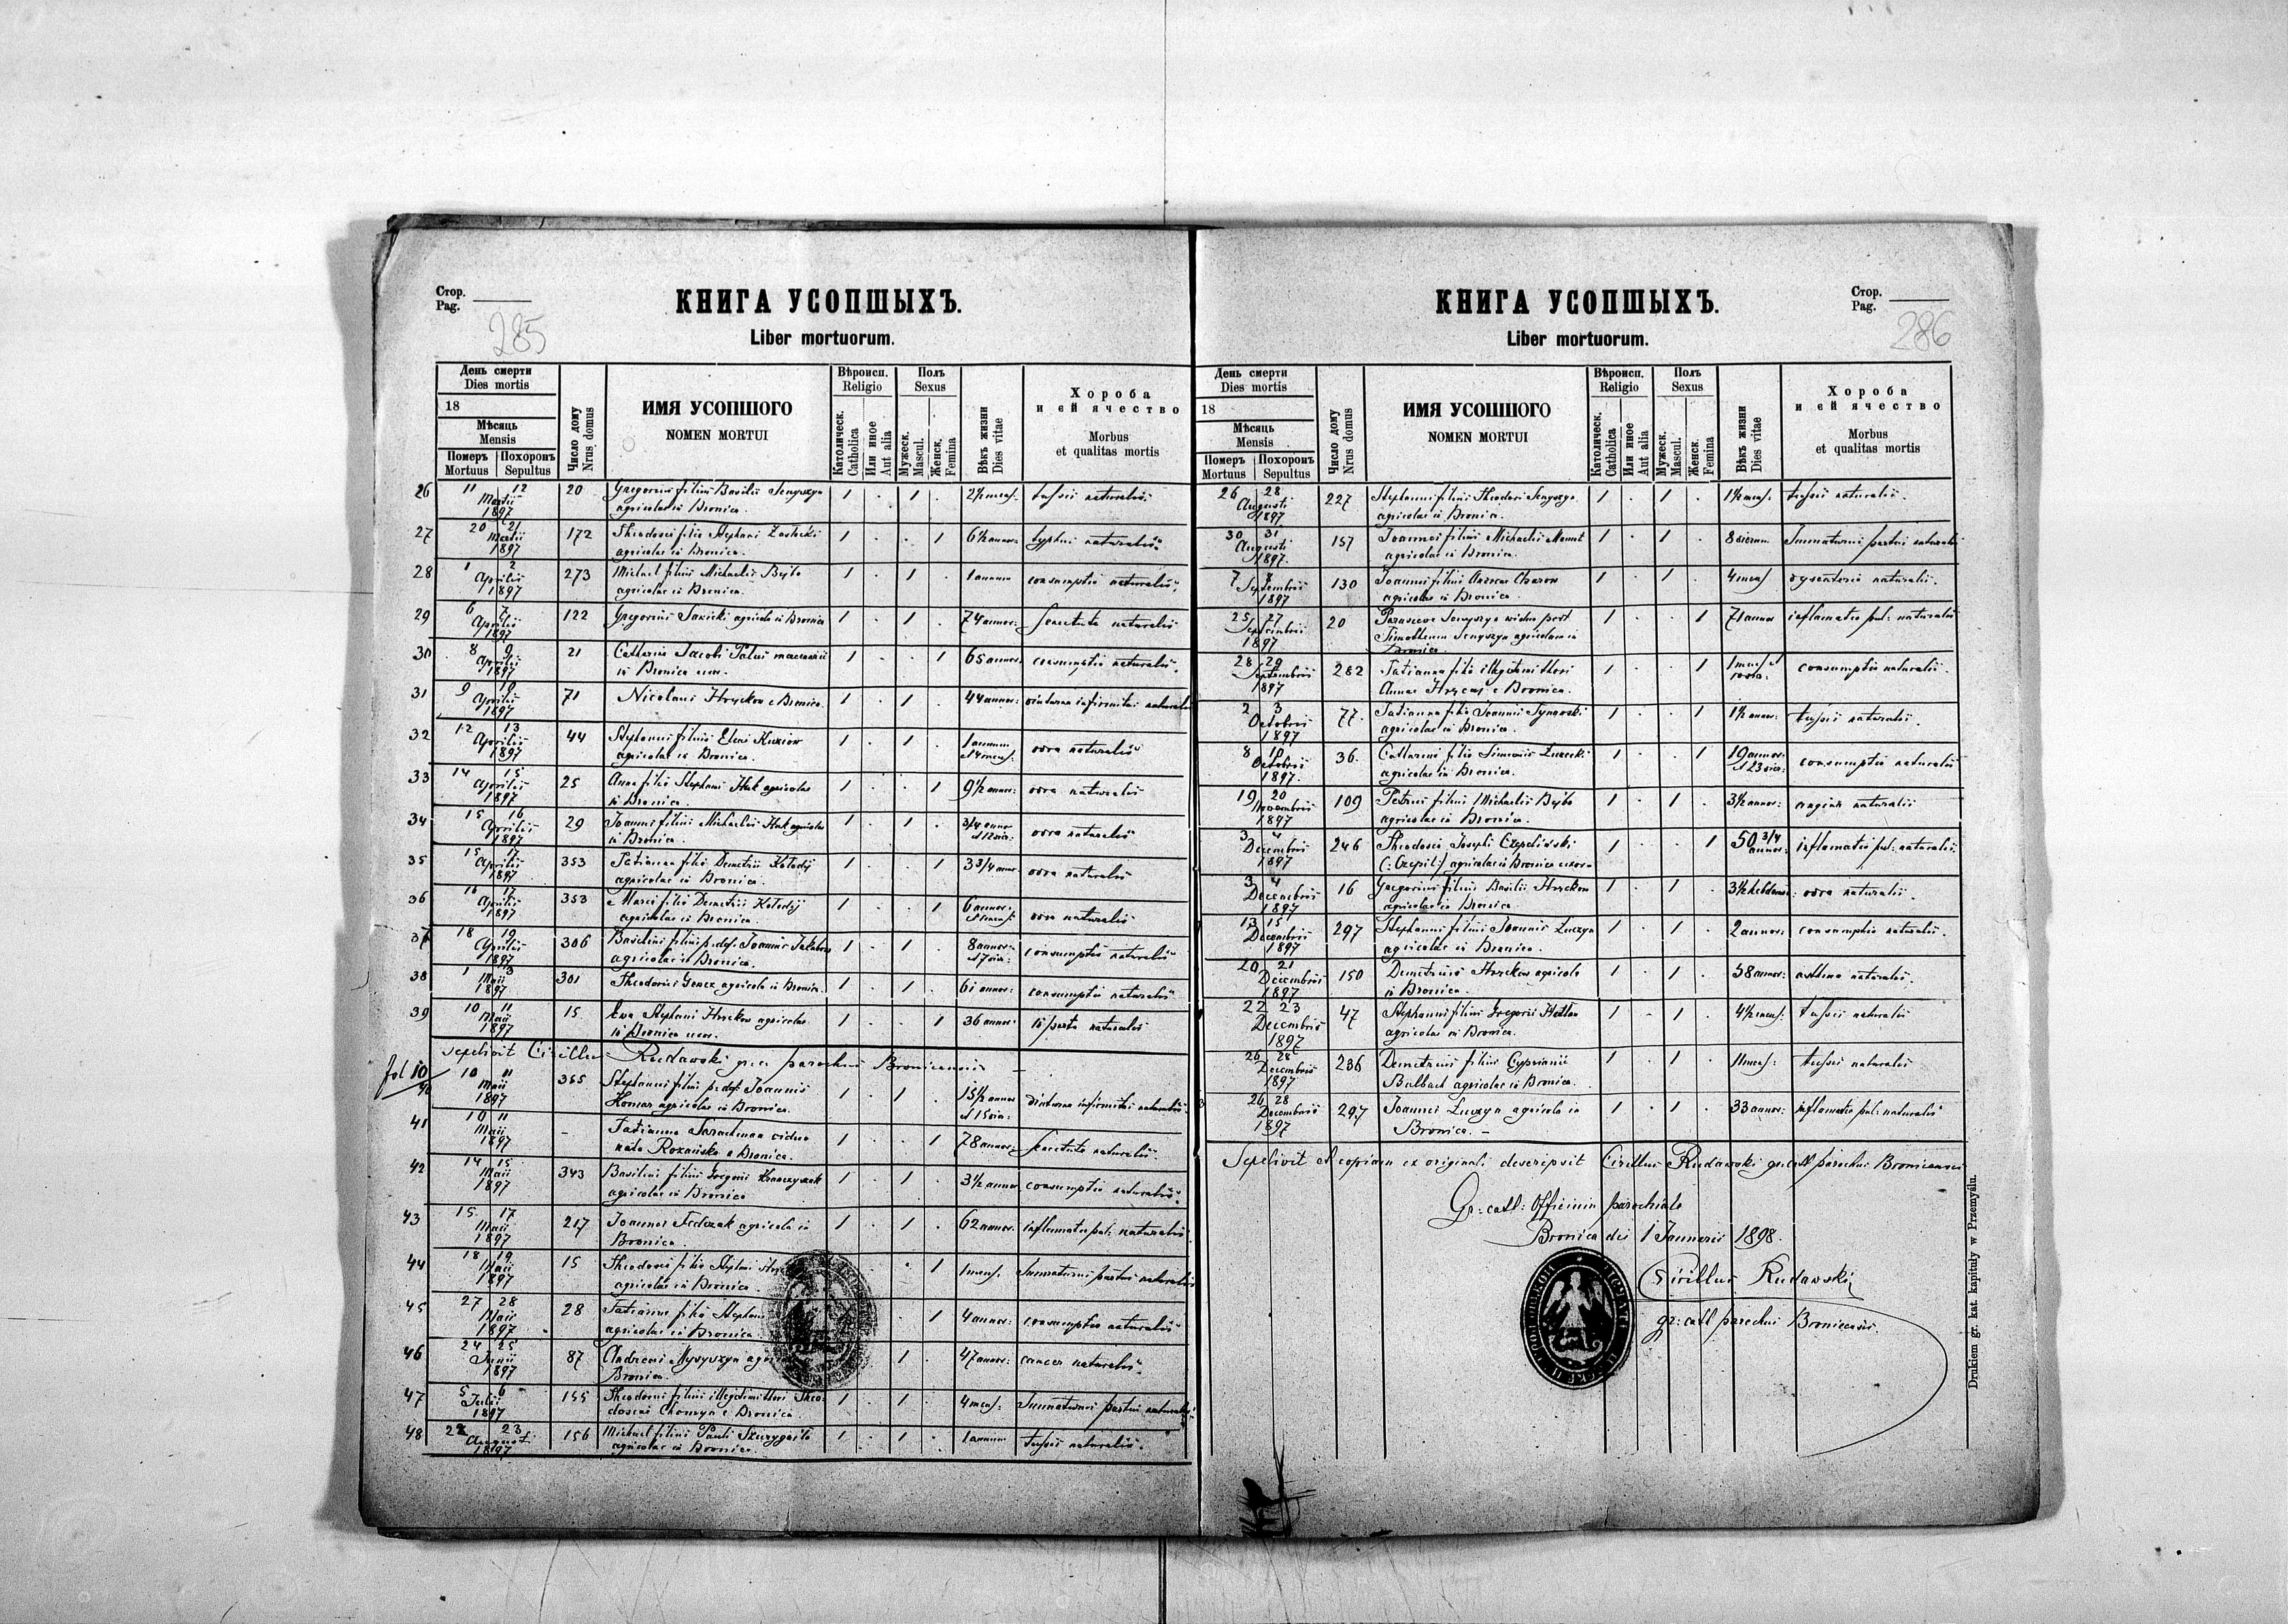 Стор.
Pag.
285
КНИГА УСОПШЫХЪ.
Liber mortuorum.
День смерти
Dies mortis
18
Мѣсяць
Mensis
Померъ Похоронъ
Mortuus Sepultus
Число дому
Nrus domus
ИМЯ УСОПШОГО
NOMEN MORTUI
Вѣроисп.
Religio
Католическ.
Catholica
Или иное
Aut alia
Полъ
Sexus
Мужеск.
Mascul.
Женск.
Femina
Вѣкъ жизни
Dies vitae
Хороба
и ей ячество
Morbus
et qualitas mortis
26 11 12 Martii 1897 20 Gregorius filius Basilii Senyszyn agricolae in Bronica. 1 . 1 . 2½ mens. tussis naturalis.
27 20 21 Martii 1897 172 Theodosia filia Stephani agricolae in Bronica. 1 . . 1 6½ annor: typhus naturalis.
28 1 2 Aprilis 1897 273 Michael filius Michaelis Bejbo agricolae in Bronica. 1 . 1 . 1 annum consumptio naturalis.
29 6 7 Aprilis 1897 122 Gregorius Sawicki agricola in Bronica 1 . 1 . 74 annor: senectute naturalis
30 8 9 Aprilis 1897 21 Catharina Jacobi in Bronica uxor. 1 . . 1 65 annor. consumptio naturalis.
31 9 10 Aprilis 1897 71 Nicolaus Hryckow e Bronica. 1 . 1 . 44 annor: diuturna infirmitas naturalis
32 12 13 Aprilis 1897 44 Stephanus filius Eliae agricolae in Bronica. 1 . 1 . 1 annum et 4 mens: ovra naturalis
33 14 15 Aprilis 1897 25 Anna filia Stephani Huk agricolae in Bronica. 1 . . 1 9½ annor: ovra naturalis
34 15 16 Aprilis 1897 29 Joannes filius Michaelis Huk agricolae in Bronica. 1 . 1 . 3/4 anno et 12 dies: ovra naturalis
35 15 17 Aprilis 1897 353 Tatianna filia Demetrii Kolodij agricolae in Bronica. 1 . . 1 3 3/4 annor. ovra naturalis
36 16 17 Aprilis 1897 353 Maria filia Demetrii Kolodij agricolae in Bronica. 1 . . 1 6 annor. ovra naturalis
37 18 19 Aprilis 1897 306 Basilius filius p. def. Joannis agricolae in Bronica. 1 . 1 . 8 annor. et 7 dies: consumptio naturalis
38 1 3 Maii 1897 301 Theodorus agricola in Bronica. 1 . 1 . 61 annor: consumptio naturalis
39 10 11 Maii 1897 15 Eva Stephani Hryckow agricolae in Bronica uxor. 1 . . 1 36 annor. in partu naturalis
sepelivit Cirillus Rudawski gr. c. parochus Bronicensis
fol 10
40 10 11 Maii 1897 355 Stephanus filius p. def. Joannis Komar agricolae in Bronica. 1 . 1 . 15½ annor et 15 dies: diuturna infirmitas naturalis
41 10 11 Maii 1897 - Tatianna Sarachman vidua nata Rozańska e Bronica. 1 . . 1 78 annor. senectute naturalis.
42 14 15 Maii 1897 343 Basilius filius Gregorii agricolae in Bronica 1 . 1 . 3½ annor consumptio naturalis.
43 15. 17 Maii 1897 217 Joannes Fedczak agricola in Bronica. 1 . 1 . 62 annor. inflamatio pul: naturalis
44 18 19 Maii 1897 15 Theodosia filia Stephani agricolae in Bronica . 1 1 mens. Immaturus partus naturalis
45 27 28 Maii 1897 28 Tatianna filia Stephani agricolae in Bronica . 1 4 annor: consumptio naturalis
46 24 25 Junii 1897 87 Andreas agricola Bronica. 1 47 annor: cancer naturalis
47 5 6 Julii 1897 155 Theodorus filius illegitimi thori Theodosiae Chomyn e Bronica. 1 . 1 . 4 mens: Immaturus partus naturalis
48 22 23 Augusti 1897 156 Michael filius Pauli agricolae in Bronica. 1 . 1 . 1 annum tussis naturalis.
Стор.
Pag.
286
КНИГА УСОПШЫХЪ.
Liber mortuorum.
День смерти
Dies mortis
18
Мѣсяць
Mensis
Померъ Похоронъ
Mortuus Sepultus
Число дому
Nrus domus
ИМЯ УСОПШОГО
NOMEN MORTUI
Вѣроисп.
Religio
Католическ.
Catholica
Или иное
Aut alia
Полъ
Sexus
Мужеск.
Mascul.
Женск.
Femina
Вѣкъ жизни
Dies vitae
Хороба
и ей ячество
Morbus
et qualitas mortis
26 28 Augusti 1897 227 Stephanus filius Theodori Senyszyn agricolae in Bronica. 1 . 1 . 1½ mens. tussis naturalis.
30 31 Augusti 1897 157 Joannes filius Michaelis agricolae in Bronica. 1 . 1 . 8 dierum Immaturus partus naturalis
7 8 Septembris 1897 130 Joannes filius Andreae Charow agricolae in Bronica. 1 . 1 . 4 mens dysenteria naturalis.
25 27 Septembris 1897 20 Parasceva Senyszyn vidua post Timotheum Senyszyn agricolam in Bronica. 1 . . 1 71 annor inflamatio pul: naturalis
28 29 Septembris 1897 282 Tatianna filia illegitimi thori Annae Hrycaj e Bronica. 1 . . 1 1 mens et consumptio naturalis.
2 3 Octobris 1897 77. Tatianna filia Joannis Synowski agricolae in Bronica. 1 . . 1 1½ annor: tussis naturalis.
8 10 Octobris 1897 36. Catharina filia Simeonis agricolae in Bronica. 1 . . 1 19 annor. et 23 dier: consumptio naturalis
19 20 Novembris 1897 109 Petrus filius Michaelis Bejbo agricolae in Bronica. 1 . 1 . 3½ annor: angina naturalis
3 4 Decembris 1897 246 Theodosia Josephi (: Czepil :) agricolae in Bronica uxor 1 . . 1 50 3/4 annor: inflamatio pul: naturalis.
3 4 Decembris 1897 16 Gregorius filius Basilii Hryckow agricolae in Bronica 1 . 1 . 3½ hebdomad: ovra naturalis.
13 15 Decembris 1897 297 Stephanus filius Joannis Luczyn agricolae in Bronica. 1 . 1 . 2 annor: consumptio naturalis.
20 21 Decembris 1897 150 Demetrius Hryckow agricola in Bronica. 1 . 1 . 58 annor: asthma naturalis.
22 23 Decembris 1897 47 Stephanus filius Gregorii agricolae in Bronica. 1 . 1 . 4½ mens: tussis naturalis
26 28 Decembris 1897 236 Demetrius filius Cypriani Bulbach agricolae in Bronica. 1 . 1 . 11 mens: tussis naturalis
26 28 Decembris 1897 297 Joannes Luczyn agricola in Bronica. 1 . 1 . 33 annor: inflamatio pul: naturalis
Sepelivit et copiam ex originali descripsit Cirillus Rudawski gr. catt parochus Bronicensis
Gr: catt: Officium parochiale
Bronica die 1 Januarii 1898.
Cirillus Rudawski
gr: catt parochus Bronicensis.
Drukiem gr. kat. kapituły w Przemyślu.